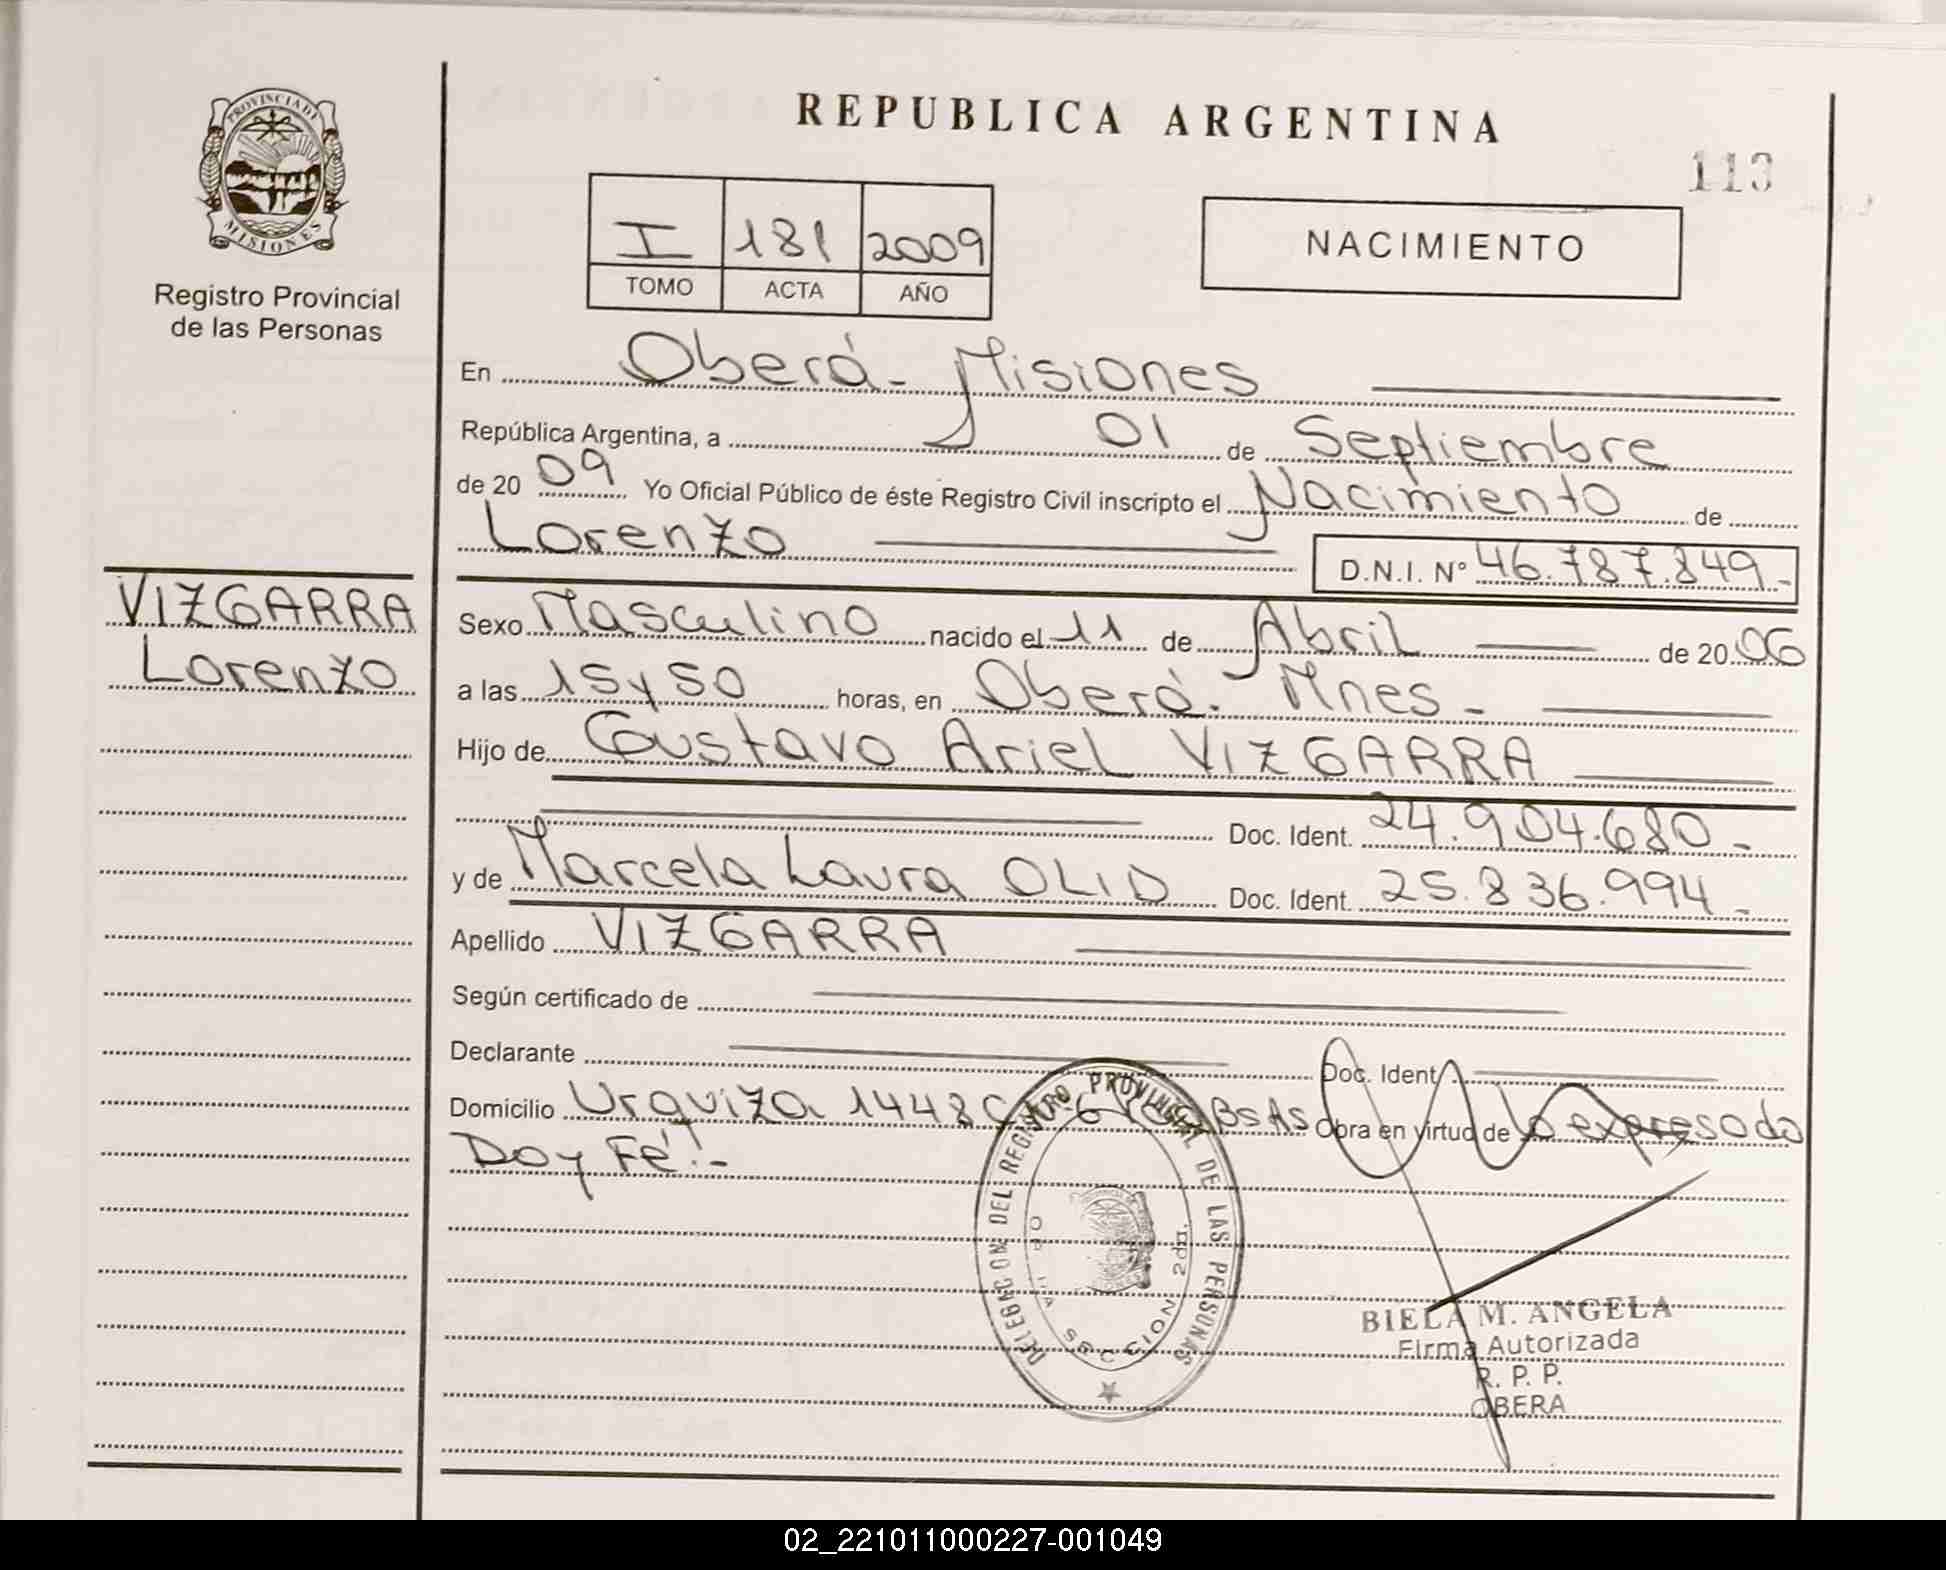 REPUBLICA ARGENTINA
113
PROVINCIA DE
MISIONES
Registro Provincial
de las Personas
I 181 2009
TOMO ACTA AÑO
NACIMIENTO
En Oberá - Misiones
República Argentina, a 01 de Septiembre
de 20 09 Yo Oficial Público de éste Registro Civil inscripto el Nacimiento de
Lorenzo D.N.I. Nº 46.787.849.-
VIZGARRA
Lorenzo
Sexo Masculino nacido el 11 de Abril de 20 06
a las 15 y 50 horas, en Oberá. Mnes -
Hijo de Gustavo Ariel VIZGARRA
Doc. Ident. 24.904.680 -
y de Marcela Laura OLID Doc. Ident. 25.836.994 -
Apellido VIZGARRA
Según certificado de
Declarante Doc. Ident.
Domicilio Urquiza 1448 BsAs Obra en virtud de lo expresado
Doy Fé!-
DELEGACION DEL REGISTRO PROVINCIAL DE LAS PERSONAS
SECCION 2da.
BIELA M. ANGELA
Firma Autorizada
R. P. P.
OBERA
02_221011000227-001049